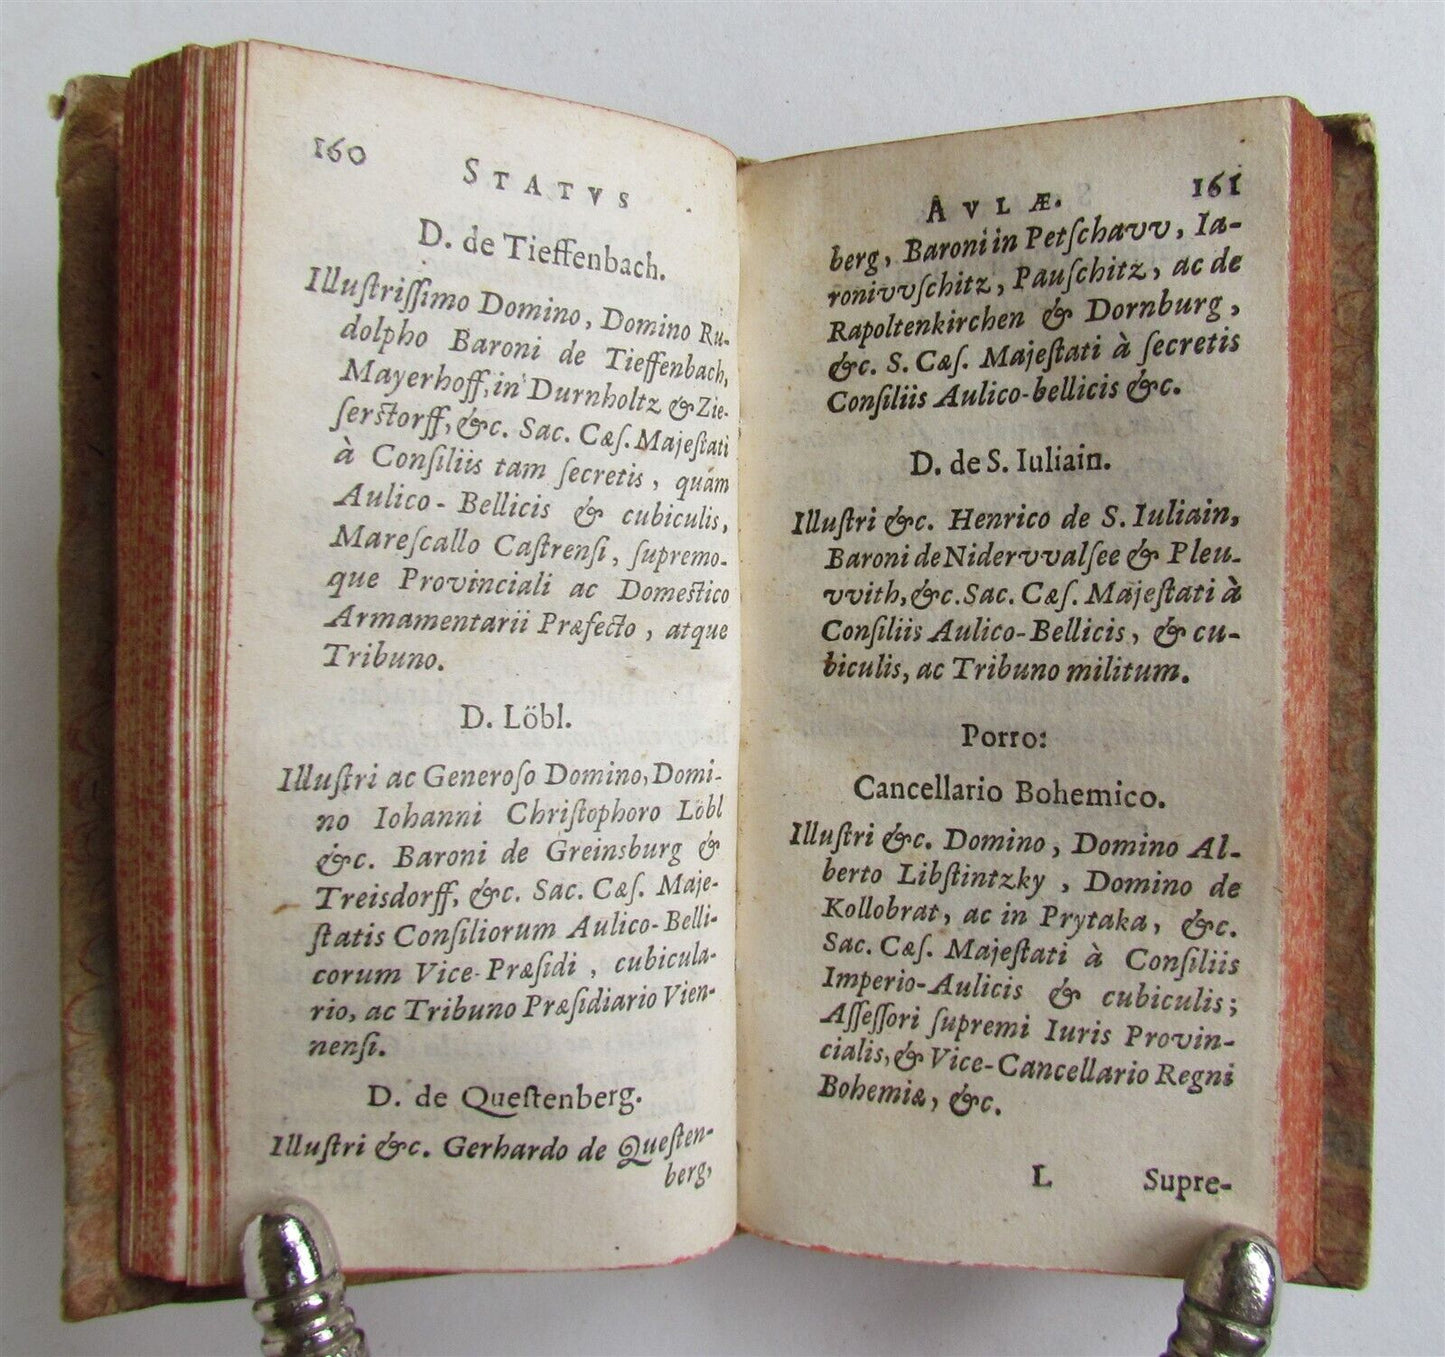 160
STATVS
D. de Tieffenbach.
Illuſtriſſimo Domino, Domino Ru-
dolpho Baroni de Tieffenbach,
Mayerhoff, in Durnholtz & Zie-
ſerſtorff, &c. Sac. Cæſ. Majeſtati
à Conſiliis tam ſecretis, quám
Aulico-Bellicis & cubiculis,
Mareſcallo Caſtrenſi, ſupremo-
que Provinciali ac Domeſtico
Armamentarii Præfecto, atque
Tribuno.
D. Löbl.
Illuſtri ac Generoſo Domino, Domi-
no Iohanni Chriſtophoro Löbl
&c. Baroni de Greinsburg &
Treisdorff, &c. Sac. Cæſ. Maje-
ſtatis Conſiliorum Aulico-Belli-
corum Vice-Præſidi, cubicula-
rio, ac Tribuno Præſidiario Vien-
nenſi.
D. de Queſtenberg.
Illuſtri &c. Gerhardo de Queſten-
berg,
AVLÆ.
161
berg, Baroni in Petſchavv, Ia-
ronivvſchitz, Pauſchitz, ac de
Rapoltenkirchen & Dornburg,
&c. S. Cæſ. Majeſtati à ſecretis
Conſiliis Aulico-bellicis &c.
D. de S. Iuliain.
Illuſtri &c. Henrico de S. Iuliain,
Baroni de Nidervvalſee & Pleu-
vvith, &c. Sac. Cæſ. Majeſtati à
Conſiliis Aulico-Bellicis, & cu-
biculis, ac Tribuno militum.
Porro:
Cancellario Bohemico.
Illuſtri &c. Domino, Domino Al-
berto Libſtintzky, Domino de
Kollobrat, ac in Prytaka, &c.
Sac. Cæſ. Majeſtati à Conſiliis
Imperio-Aulicis & cubiculis;
Aſſeſſori ſupremi Iuris Provin-
cialis, & Vice-Cancellario Regni
Bohemiæ, &c.
L Supre-